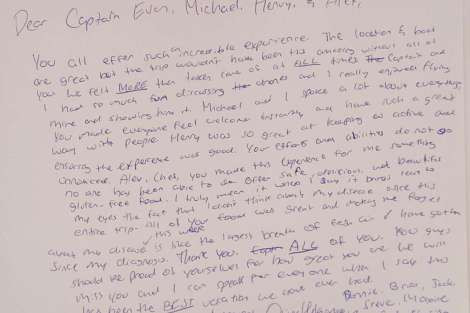 Dear Captain Evan, Michael, Henry, & Alex,
You all offer such an incredible experience. The location & boat
are great but the trip wouldn't have been this amazing without all of
you. We felt MORE than taken care of at ALL times. Captain and
I had so much fun discussing drones and I really enjoyed flying
mine and showing him it. Michael and I spoke a lot about everything.
You made everyone feel welcome instantly and have such a great
way with people. Henry was so great at keeping us active and
ensuring the experience was good. Your efforts and abilities do not go
unnoticed. Alex, Chef, you made this experience for me something
no one has been able to do. Offer safe, delicious, and beautiful
gluten-free food. I truly mean it when I say it brings tears to
my eyes the fact that I didn't think about my disease once this
entire trip - all of your food was great and making me forget
this week
about my disease is like the largest breath of fresh air I have gotten
since my diagnosis. Thank you. ALL of you. You guys
should be proud of yourselves for how great you are. We will
miss you and I can speak for everyone when I say this
has been the BEST vacation we have ever had.
Bonnie, Brian, Jack,
Steve, Maxine